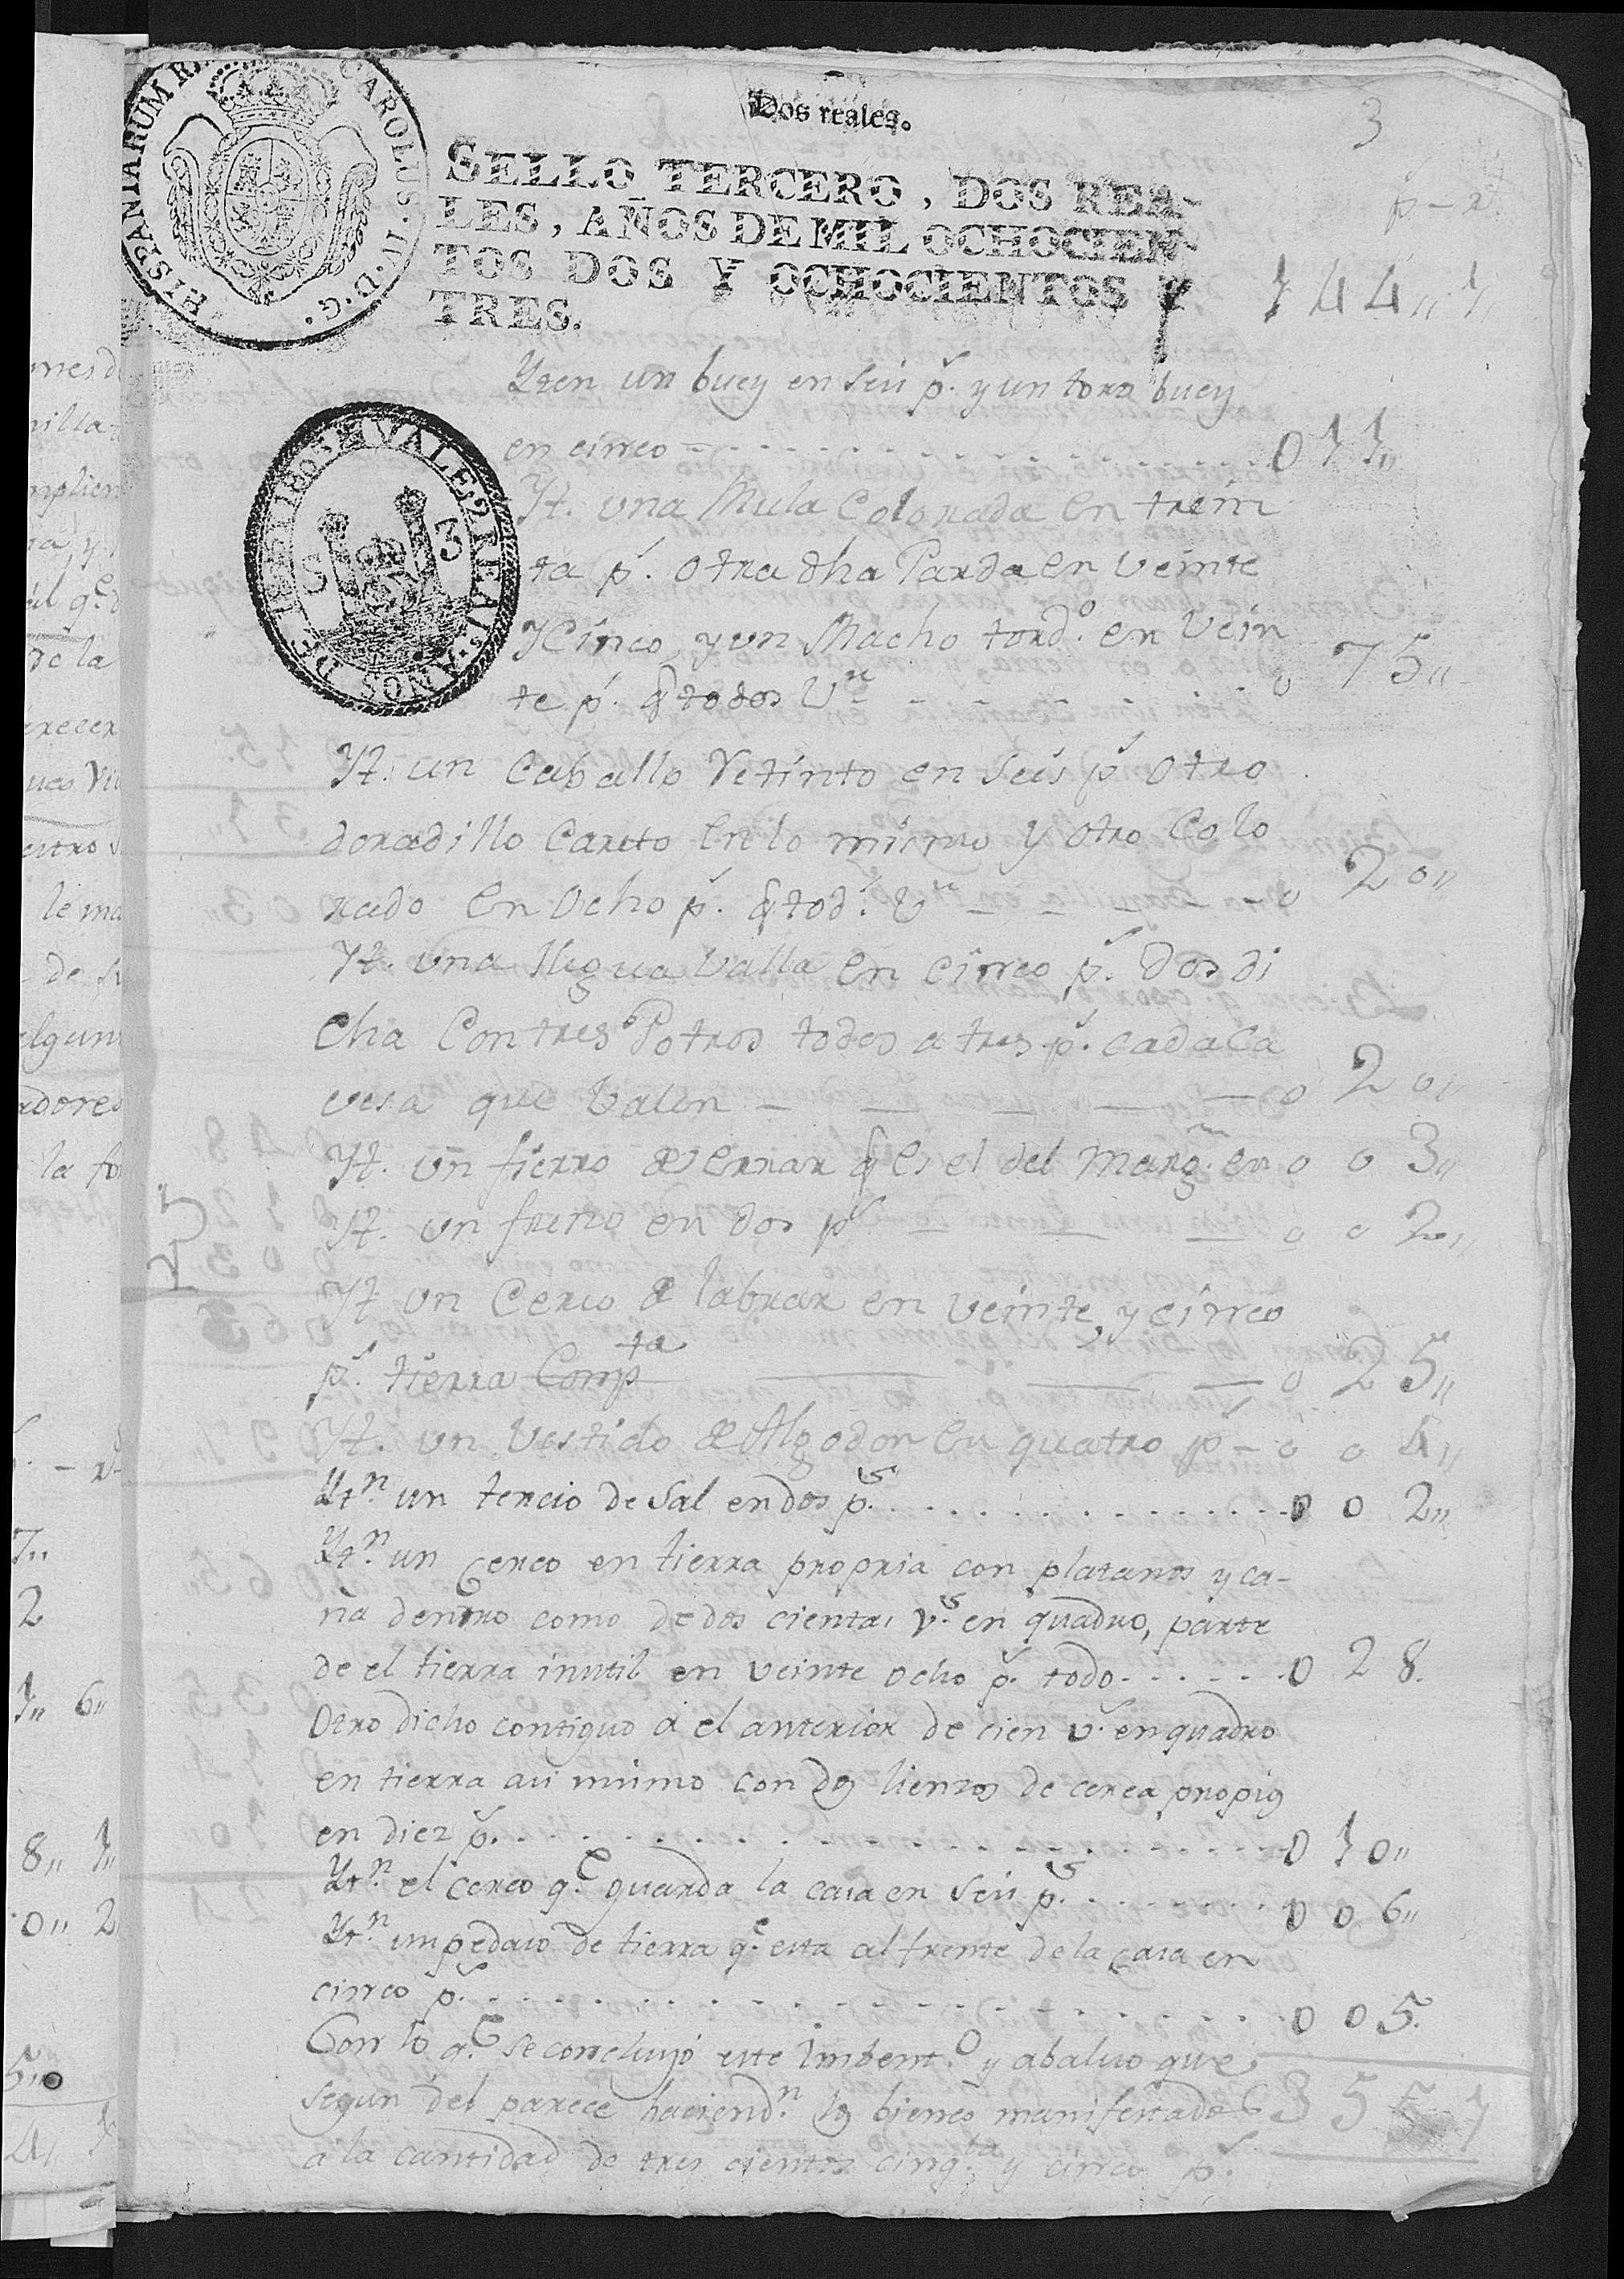 Dos reales.
3
SELLO TERCERO, DOS REA-
LES, AÑOS DE MIL OCHOCIEN-
TOS DOS Y OCHOCIENTOS Y
TRES.
HISPANIARUM R CAROLUS · IV · D · G ·
p - r
144,, 1,,
Yten un buey en seis p.s y un toro buey
en cinco - - - - 011,,
VALE 2 REA
Yt. una Mula Colorada en trein
ta p.s otra dha Parda en veinte
y Cinco, y un Macho tord.o en Vein
te p.s q todos V.n - - - - 0 75,,
Yt. un Caballo Retinto en seis p.s otro
doradillo Careto en lo mismo y otro Colo
rado en Ocho p.s q tod.s V.n - - - - 0 20,,
Yt. una Yegua Valla en cinco p.s dos di
cha Con tres Potros todos a tres p.s cada ca
vesa que Valen - - - - 0 20,,
Yt. un fierro de errar q es el del Marg.n en 0 0 3,,
Yt. un freno en dos p.s - - - 0 0 2,,
Yt. un Cerco de labrar en veinte y cinco
p.s tierra Comp.ta - - - 0 25,,
Yt. un Vestido de Algodon en quatro p.s - 0 0 4,,
Yt.n un tercio de Sal en dos p.s - - - - 0 0 2,,
Yt.n un Cerco en tierra propria con platanos y ca-
ña dentro como de dos cientas v.s en quadro, parte
de el tierra inutil en veinte ocho p.s todo - - - - 0 28.
Otro dicho contiguo a el anterior de cien v.s en quadro
en tierra asi mismo con dos lienzos de cerca propios
en diez p.s - - - - 0 10,,
Yt.n el cerco q.e guarda la casa en seis p.s - - - - 0 0 6,,
Yt.n un pedazo de tierra q.e esta al frente de la casa en
cinco p.s - - - - 0 0 5.
Con lo q.e se concluyó este Imbent.o y abaluo que
segun del parece haciend.n los bienes manifestados 355 1
a la cantidad de tres cientos cinq.ta y cinco p.s